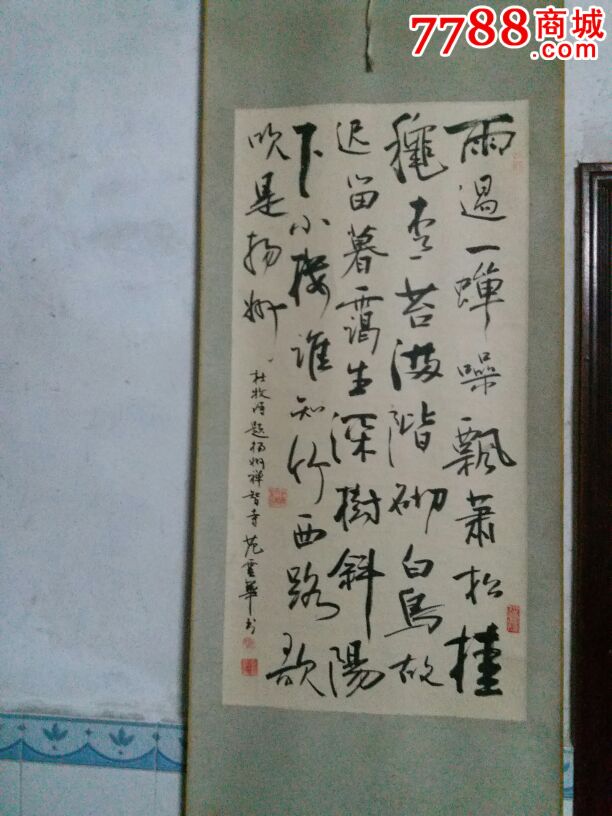 7788商城
.com
雨過一蟬噪飄蕭松桂
秋青苔滿階砌白鳥故
迟留暮靄生深樹斜陽
下小楼誰知竹西路歌
吹是扬州
杜牧诗题扬州禅智寺范雲華书